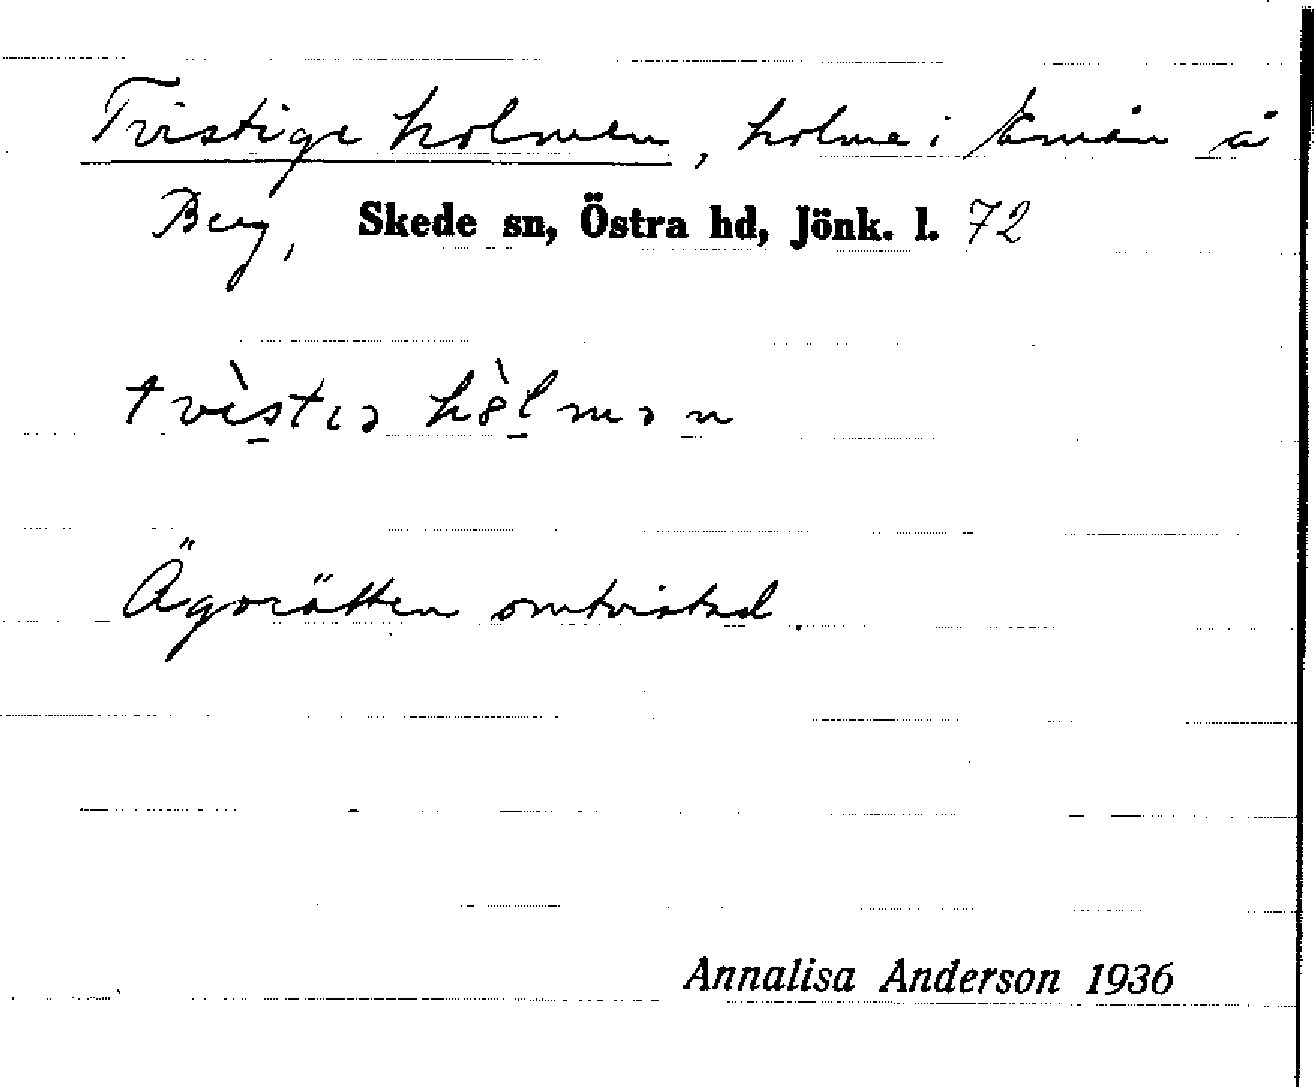 Tvistige holmen, holme i Emån å
Berg, Skede sn, Östra hd, Jönk. l. 72
tvìstıə hòlmən
Ägorätten omtvistad.
Annalisa Anderson 1936